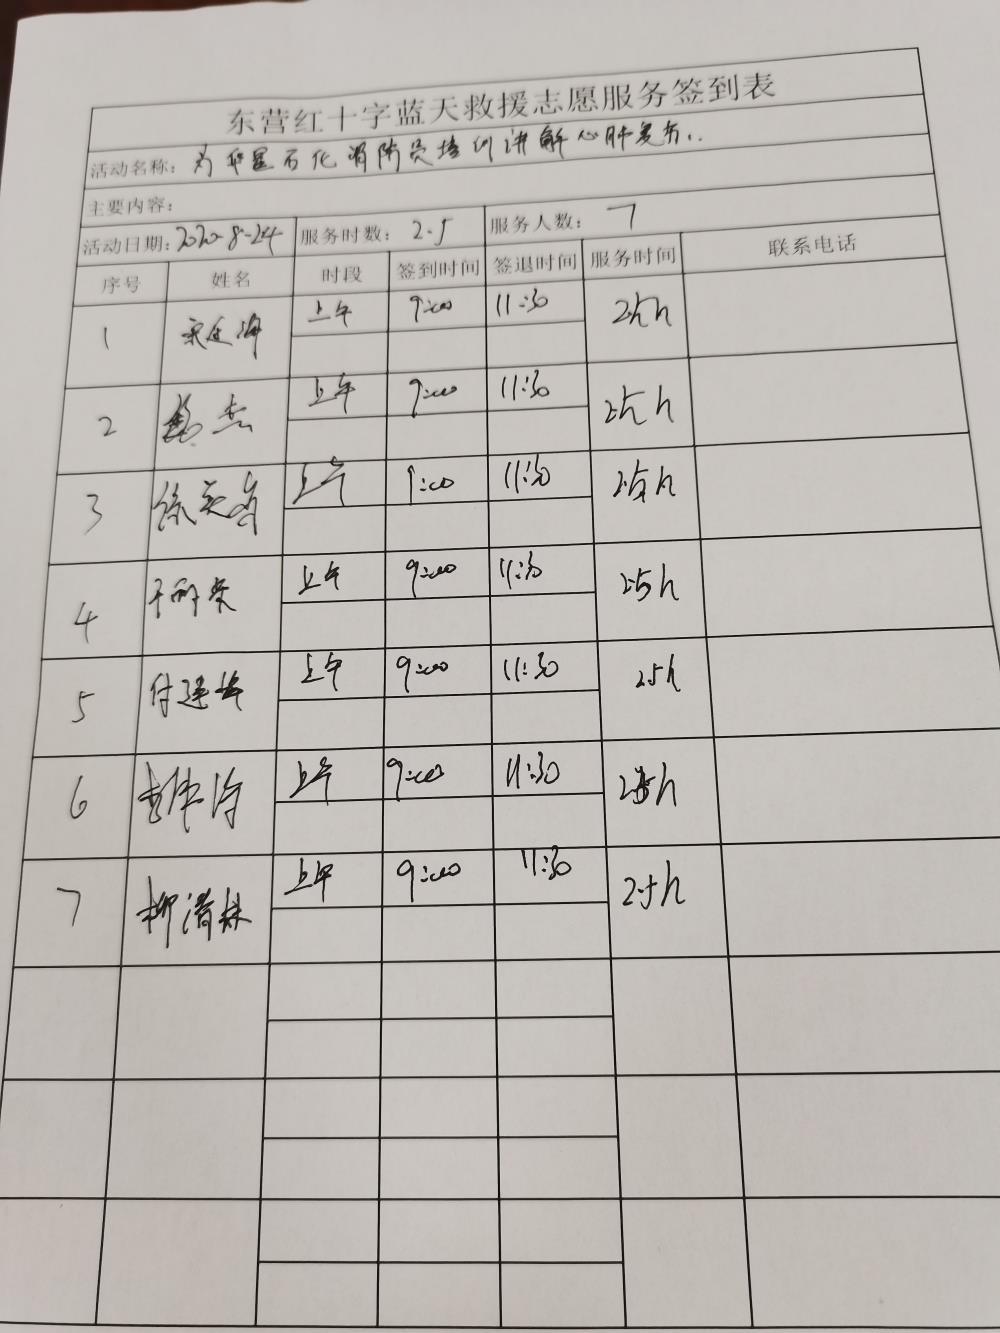 东营红十字蓝天救援志愿服务签到表
活动名称：为华星石化消防员培训讲解心肺复苏..
主要内容：
活动日期：2020-8-24 服务时数：2.5 服务人数：7
序号 姓名 时段 签到时间 签退时间 服务时间 联系电话
1 上午 9:00 11:30 2.5h
2 杰 上午 9:00 11:30 2.5h
3 徐 上午 9:00 11:30 2.5h
4 上午 9:00 11:30 2.5h
5 付连 上午 9:00 11:30 2.5h
6 上午 9:00 11:30 2.5h
7 柳清林 上午 9:00 11:30 2.5h